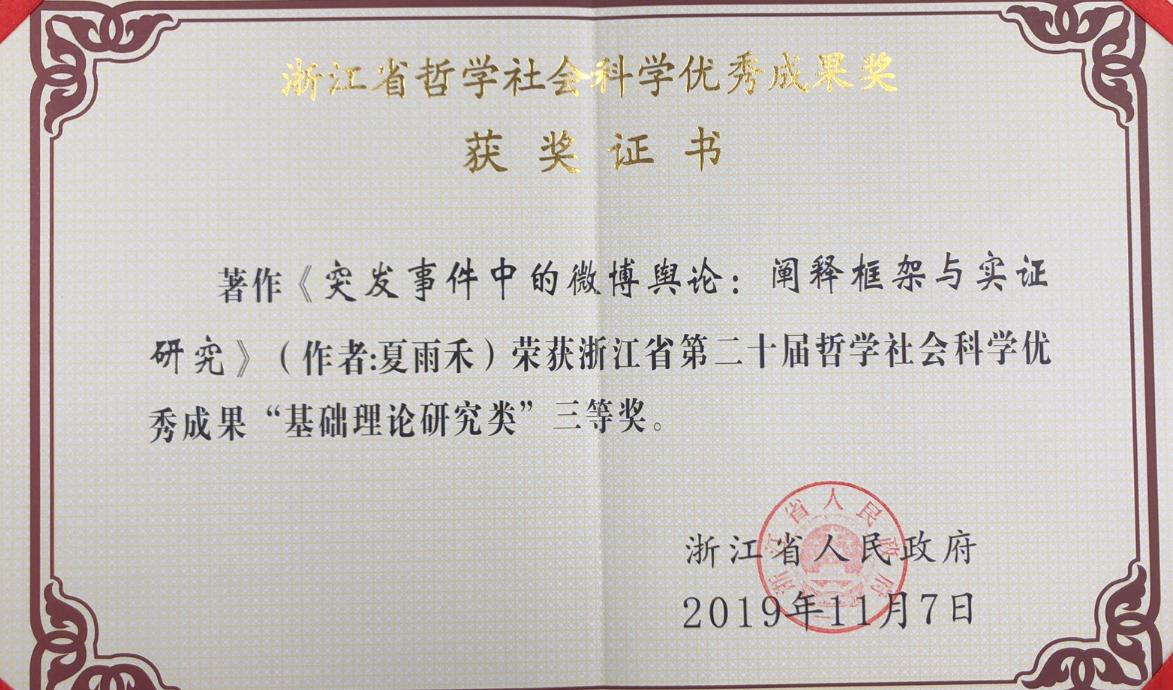 浙江省哲学社会科学优秀成果奖
获奖证书
著作《突发事件中的微博舆论：阐释框架与实证
研究》（作者:夏雨禾）荣获浙江省第二十届哲学社会科学优
秀成果“基础理论研究类”三等奖。
浙江省人民政府
浙江省人民政府
2019年11月7日